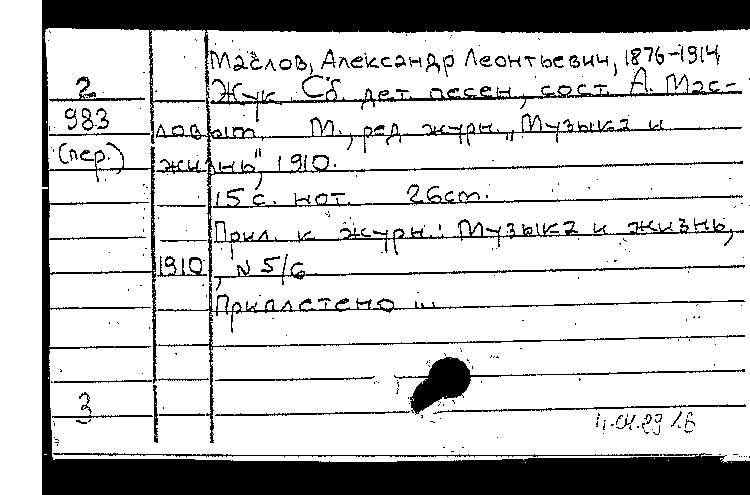 Маслов, Александр Леонтьевич, 1876-1914
2 Жук Сб. дет. песен, сост. А. Мас-
983 ловым. М., ред. журн. „Музыка и
(пер.) жизнь", 1910.
15 с. нот. 26cm.
Прил. к журн.: Музыка и жизнь,
1910, N 5/6
Приплетено ...
3